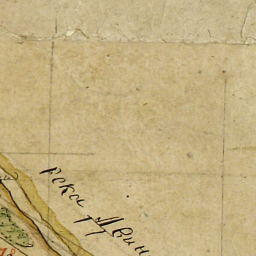 река Двин